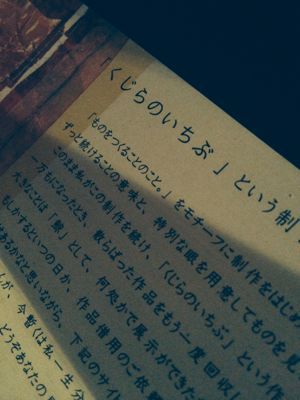 「くじらのいちぶ」という制
「ものをつくることのこと。」をモチーフに制作をはじめ
ずっと続けることの意味と、特別な眼を用意してものを見
この先私がこの制作を続け、「くじらのいちぶ」という作
一万もになったとき、散らばった作品をもう一度回収し
大きなことは「鯨」として、何処かで展示ができた
もしかするといつの日か、作品借用のご依
せるかなと思いながら、下記のサイ
が、今暫くは私一生分
どうぞあなたの